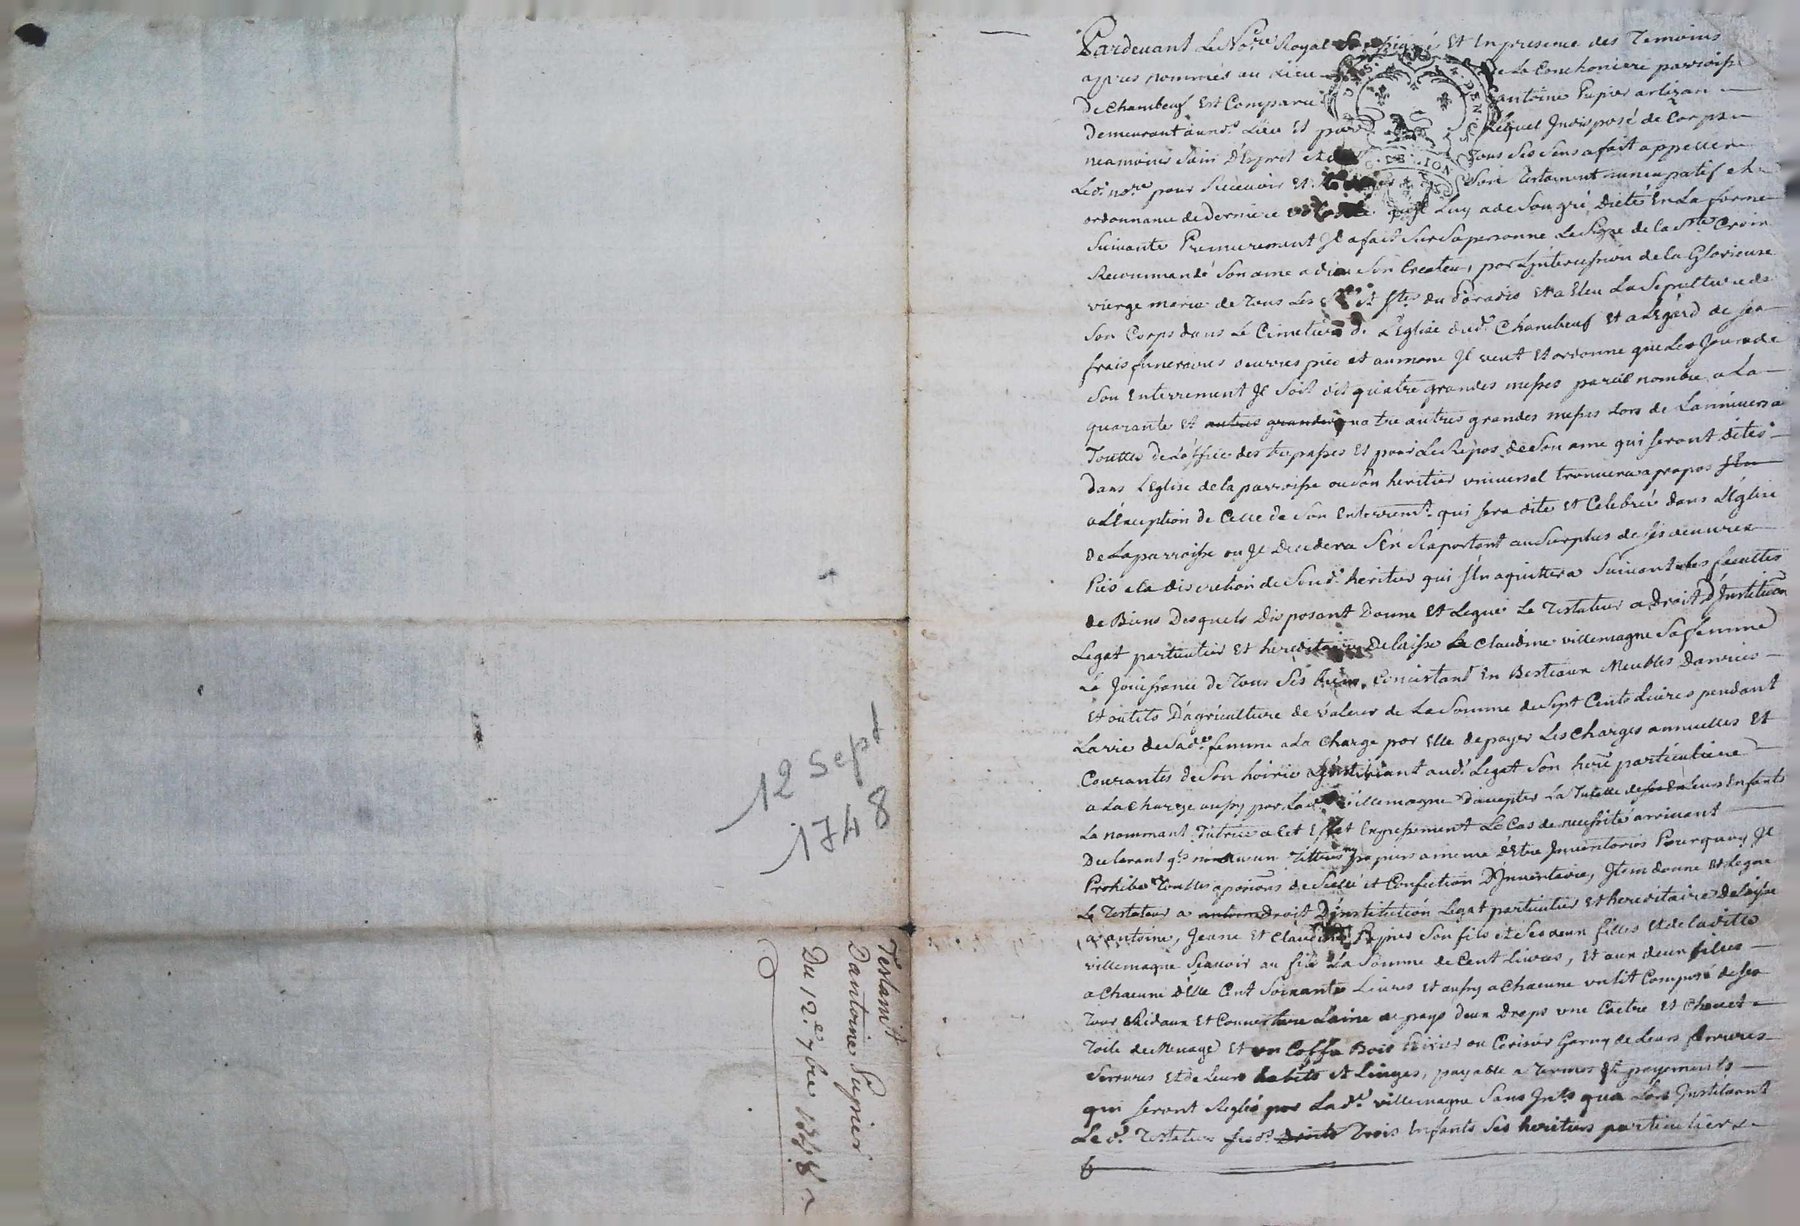 12 Sept
1748
Testamt
Dantoine Pupier
Du 12e 7bre 1748
Pardevant Le Nore Royal soussigné Et En presence des Temoins
apres nommés au Lieu de La Conchoniere parroisse
De chambeuf Est Comparu antoine Pupier artizan
Demeurant aud. Lieu Et parr Lequel Indisposé de Corps
neamoins Sain D'Esprit et de Tous Ses Sens a fait appeller
Led. nore pour Recevoir Et Son Testament nuncupatif et
ordonnance de Derniere volonté quil Luy a de Son gré Dicté En La forme
Suivante Premierement Il a fait Sur Sa personne Le Signe de la Ste Croix
Recommandé Son ame a dieu Son Createur, par L'intercession de la Glorieuse
vierge marie de Tous Les Sts Et Stes du Paradis Et a Eleu La Sepulture de
Son Corps dans Le Cimetiere de L'Eglise dud. Chambeuf Et a L'Egard de Ses
frais funeraires oeuvres pies et aumone Il veut Et ordonne que Les Jour de
Son Enterrement Il Soit dit quatre grandes messes pareil nombre a La
quarante Et autres grandes quatre autres grandes messes Lors de Lanniversa
Touttes de L'office des trepasses Et pour Le Repos de Son ame qui Seront dites
Dans L'Eglise de la parroisse ou Son heritier universel trouvera a propos
a L'Exception de Celle de Son Enterremt. qui Sera dite Et Celebrée dans L'Eglise
De La parroisse ou Il Decedera S'En Raportant au Surplus de Ses oeuvres
Pies a la discretion de Sond. heritier qui S'En aquittera Suivant Les facultes
de Biens Desquels Disposant Donne Et Legue Le Testateur a Droit D'Institution
Legat particulier Et hereditaire Delaisse a Claudine villemagne Sa femme
La Jouissance de Tous Ses biens Concistant En Bestiaux Meubles Danries
Et outils D'agriculture de valeur de La Somme de Sept Cents Livres pendant
La vie de Sade. femme a La Charge par Elle de payer Les Charges annuelles Et
Courantes de Son hoirie L'Instituant aud. Legat Son here particuliere
a La charge aussy par Lade villemagne D'accepter La Tutelle de Leurs Enfants
La nommant Tutrice a Cet Effet Expressement Le Cas de necessité arrivant
Declarant qls nont aucun Tittres ny papiers a meme D'Etre Inventoriés Pourquoy Il
Prohibe Touttes aposions de Scellé et Confection D'Inventaire, Item donne Et Legue
Le Testateur a antoine Droit D'institution Legat particulier Et hereditaire Delaisse
a antoine, Jeane Et Claudine Pupier Son fils et Ses deux filles Et de laditte
villemagne Scavoir au fils La Somme de Cent Livres, Et aux deux filles
a Chacune D'Elle Cent Soixante Livres Et aussy a Chacune un Lit Composé de Ses
Tour Ridaux Et Couverture Laine de pays deux Draps une Caetre Et Chevet
Toile de Menage Et un Coffre Bois ou Cerisier Garny de Leurs ferrures
Serrures Et de Leurs habits Et Linges, payable a Termes Et payements
qui Seront Reglés par Lade villemagne Sans Ints. qua Lors Instituant
Led. Testateur Sesd. Droits Trois Enfants Ses heritiers particuliers